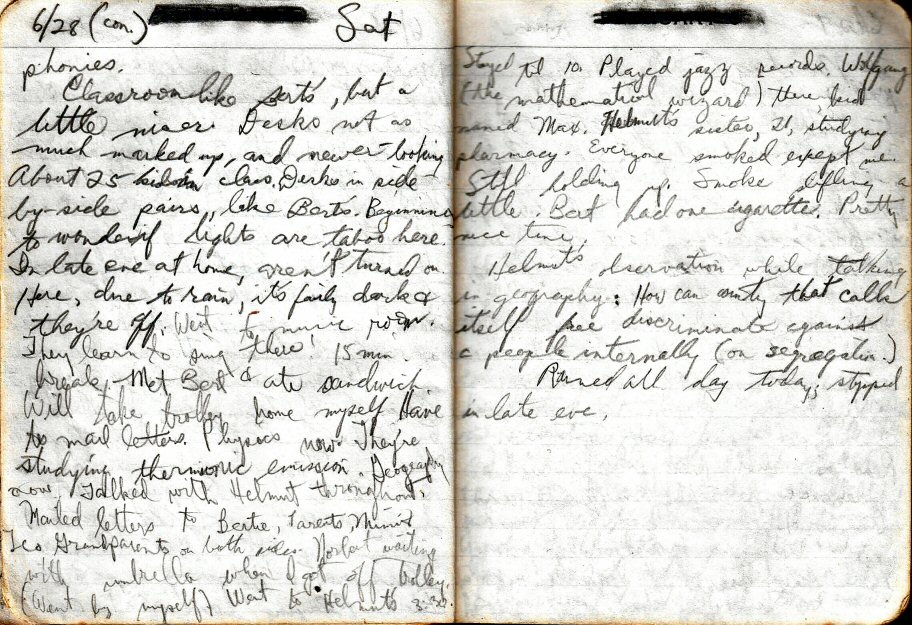 6/28 (con.) Sat
phonies.
Classroom like Bert's, but a
little nicer. Desks not as
much marked up, and newer-looking
About 25 in class. Desks in side-
by-side pairs, like Bert's. Beginning
to wonder if lights are taboo here.
In late eve at home, aren't turned on.
Here, due to rain, it's fairly dark &
they're off. Went to music room.
They learn to sing there! 15 min.
break. Met Bert & ate sandwich
Will take trolley home myself. Have
to mail letters. Physics now. They're
studying thermionic emission. Geography
now. Talked with Helmut throughout.
Mailed letters to Bertie, Parents, Mimi's
Grandparents on both sides. Norbert waiting
with umbrella when I got off trolley.
(Went by myself) Went to Helmut's 3:30.
Stayed til 10. Played jazz records. Wolfgang
(the mathematical wizard) there, kid
named Max. Helmut's sister, 21, studying
pharmacy. Everyone smoked except me.
Still holding up. Smoke drifting a
little. Bert had one cigarette. Pretty
nice time.
Helmut's observation while talking
in geography: How can cuntry that calls
itself free discriminate against
a people internally (on segregation.)
Rained all day today; stopped
in late eve.